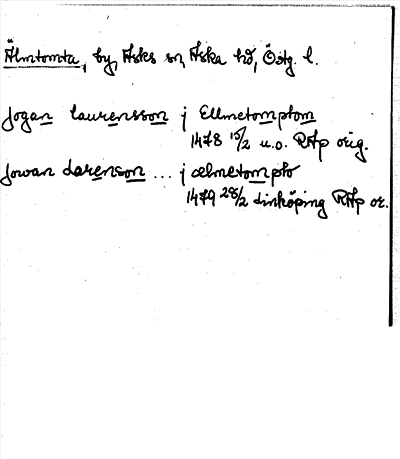 Älmtomta, by, Asks sn, Aska hd, Östg. l.
Jogan laurensson j Ellmetomptom
1478 15/2 u.o. RAp orig.
Jowan larenson ... j ælmetompto
1479 28/2 Linköping RAp or.